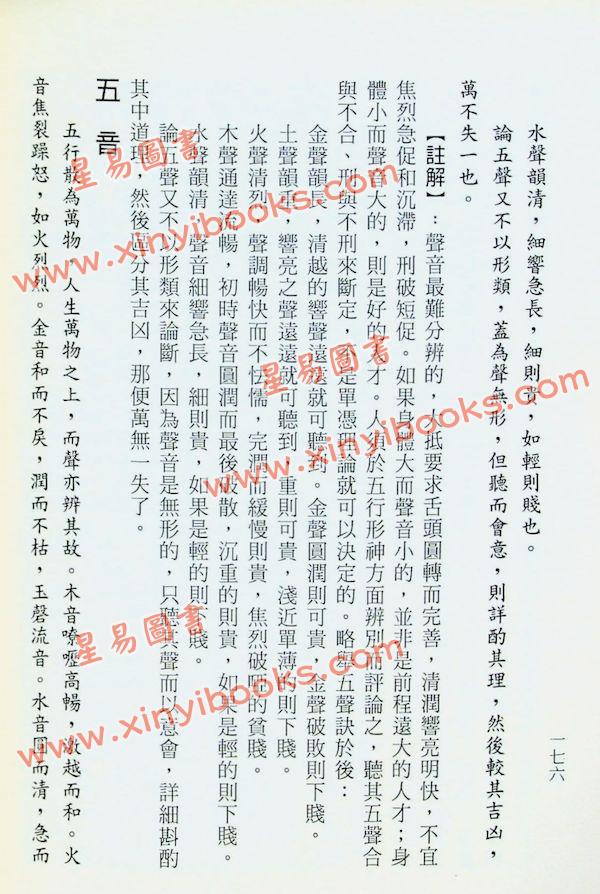 水聲韻清，細響急長，細則貴，如輕則賤也。
論五聲又不以形類，蓋為聲無形，但聽而會意，則詳酌其理，然後較其吉凶，
萬不失一也。
【註解】：聲音最難分辨的，大抵要求舌頭圓轉而完善，清潤響亮明快，不宜
焦烈急促和沉滯，刑破短促。如果身體大而聲音小的，並非是前程遠大的人才；身
體小而聲音大的，則是好的人才。人須於五行形神方面辨別而評論之，聽其五聲合
與不合、刑與不刑來斷定，不是單憑理論就可以決定的。略舉五聲訣於後：
金聲韻長，清越的響聲遠遠就可聽到。金聲圓潤則可貴，金聲破敗則下賤。
土聲韻重，響亮之聲遠遠就可聽到，重則可貴，淺近單薄的則下賤。
火聲清烈，聲調暢快而不怯儒，完潤而緩慢則貴，焦烈破啞的貧賤。
木聲通達流暢，初時聲音圓潤而最後破散，沉重的則貴，如果是輕的則下賤。
水聲韻清，聲音細響急長，細則貴，如果是輕的則下賤。
論五聲又不以形類來論斷，因為聲音是無形的，只聽其聲而以意會，詳細斟酌
其中道理，然後區分其吉凶，那便萬無一失了。
五音
五行散為萬物，人生萬物之上，而聲亦辨其故。木音嘹嚦高暢，激越而和。火
音焦裂躁怒，如火烈烈。金音和而不戾，潤而不枯，玉磬流音。水音圓而清，急而
一七六
星易圖書
www.xinyibooks.com
星易圖書
www.xinyibooks.com
星易圖書
www.xinyibooks.com